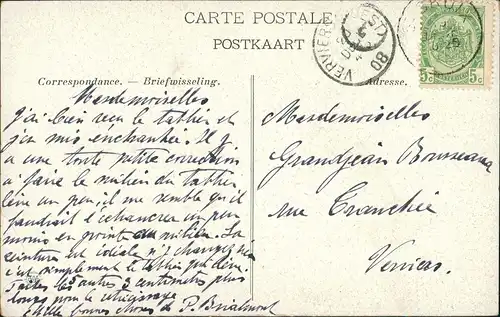 CARTE POSTALE
POSTKAART
Correspondance. — Briefwisseling.
Adresse.
VERVIERS (OUEST)
5c 5c
Mesdemoiselles
j'ai bien reçu le tablier et
j'en suis enchantée. Il y
a une toute petite correction
à faire le milieu du tablier
lève un peu, il me semble qu'il
faudrait l'échancrer un peu
moins en pointe au milieu. La
ceinture est idéale n'y changez rien
c'est simplement le tablier qui lève.
Faites les 5 autres 3 centimètres plus
longs pour le
Mille bonnes choses de P. Brialmont
Mesdemoiselles
Grandjean Rousseau
rue Tranchée
Verviers.